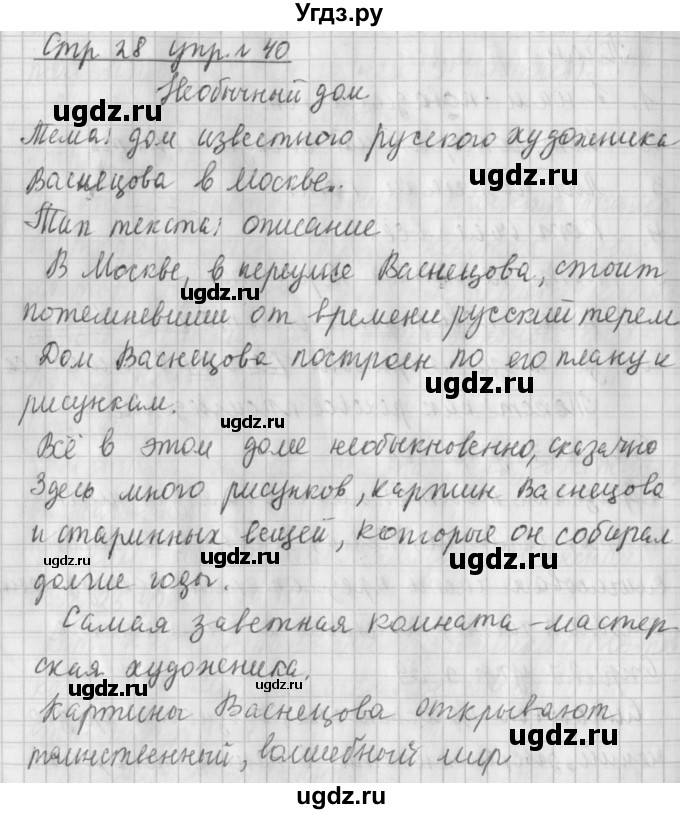 Угдз.ру
Стр 28 упр. № 40
Необычный дом
Тема: дом известного русского художника
Васнецова в Москве.
Тип текста: описание
В Москве, в переулке Васнецова, стоит
потемневший от времени русский терем
Дом Васнецова построен по его плану и
рисункам.
Всё в этом доме необыкновенно, сказачно
Здесь много рисунков, картин Васнецова
и старинных вещей, которые он собирал
долгие годы.
Самая заветная комната - мастер-
ская художника.
Картины Васнецова открывают
таинственный, волшебный мир
ugdz.ru
ugdz.ru
ugdz.ru
ugdz.ru
ugdz.ru
ugdz.ru
ugdz.ru
ugdz.ru
ugdz.ru
ugdz.ru
ugdz.ru
ugdz.ru
ugdz.ru